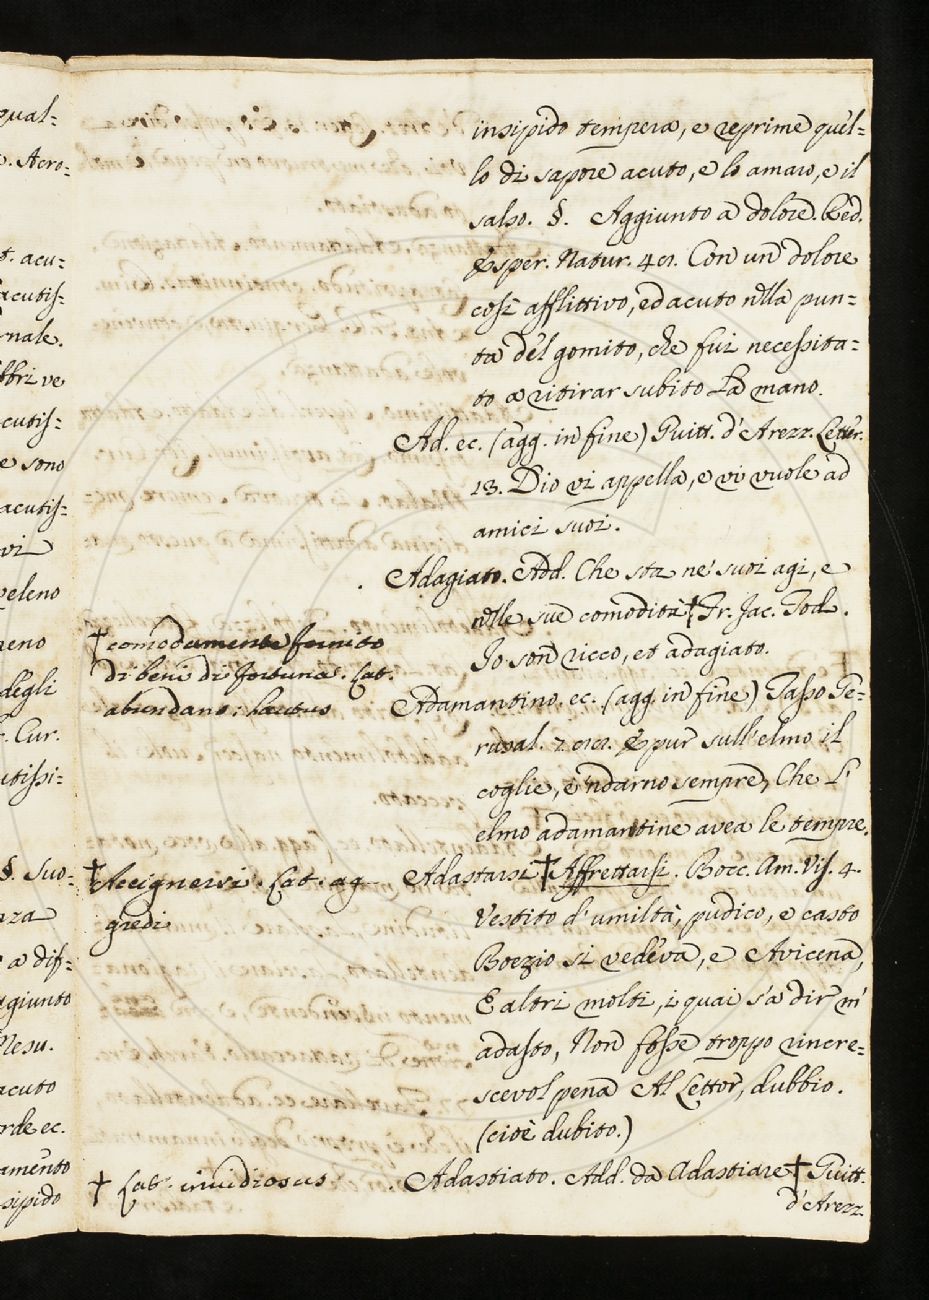 qual-
. Acro-
t. acu-
acutis-
nale.
bbri ve
cutis-
e sono
acutis-
vi
veleno
reno
degli
. Cur.
utissi-
§. Suo-
nza
a dif-
ggiunto
Mesu.
acuto
rde ec.
amento
sipido
insipido tempera, e reprime quel-
lo di sapore acuto, e lo amaro, e il
salso. §. Aggiunto a dolore. Red.
Esper. Natur. 41. Con un dolore
così afflittivo, ed acuto nella pun-
ta del gomito, che fui necessita-
to a ritirar subito la mano.
Ad. ec. (agg. in fine) Guitt. d'Arezz. Letter.
13. Dio vi appella, e vi vuole ad
amici suoi.
Adagiato. Add. Che sta ne' suoi agi, e
nelle sue comodità † Fr. Jac. Tod.
Io son ricco, et adagiato.
† comodamente fornito
di beni di fortuna. Lat.
abundans: lautus
Adamantino. ec. (agg. in fine) Tasso Ge-
rusal. 7. Eppur sull'elmo il
coglie, e 'ndarno sempre, Che l'
elmo adamantine avea le tempre.
Adastarsi † Affrettarsi. Bocc. Am. Vis. 4.
† Accignersi. Lat. ag
gredi
Vestito d'umiltà, pudico, e casto
Boezio si vedeva, e Avicena,
E altri molti, i quai s'a dir m'
adasto, Non fosse troppo rincre-
scevol pena Al Lettor, dubbio.
(cioè dubito.)
Adastiato. Add. da Adastiare † Guitt.
d'Arezz.
† Lat. invidiosus